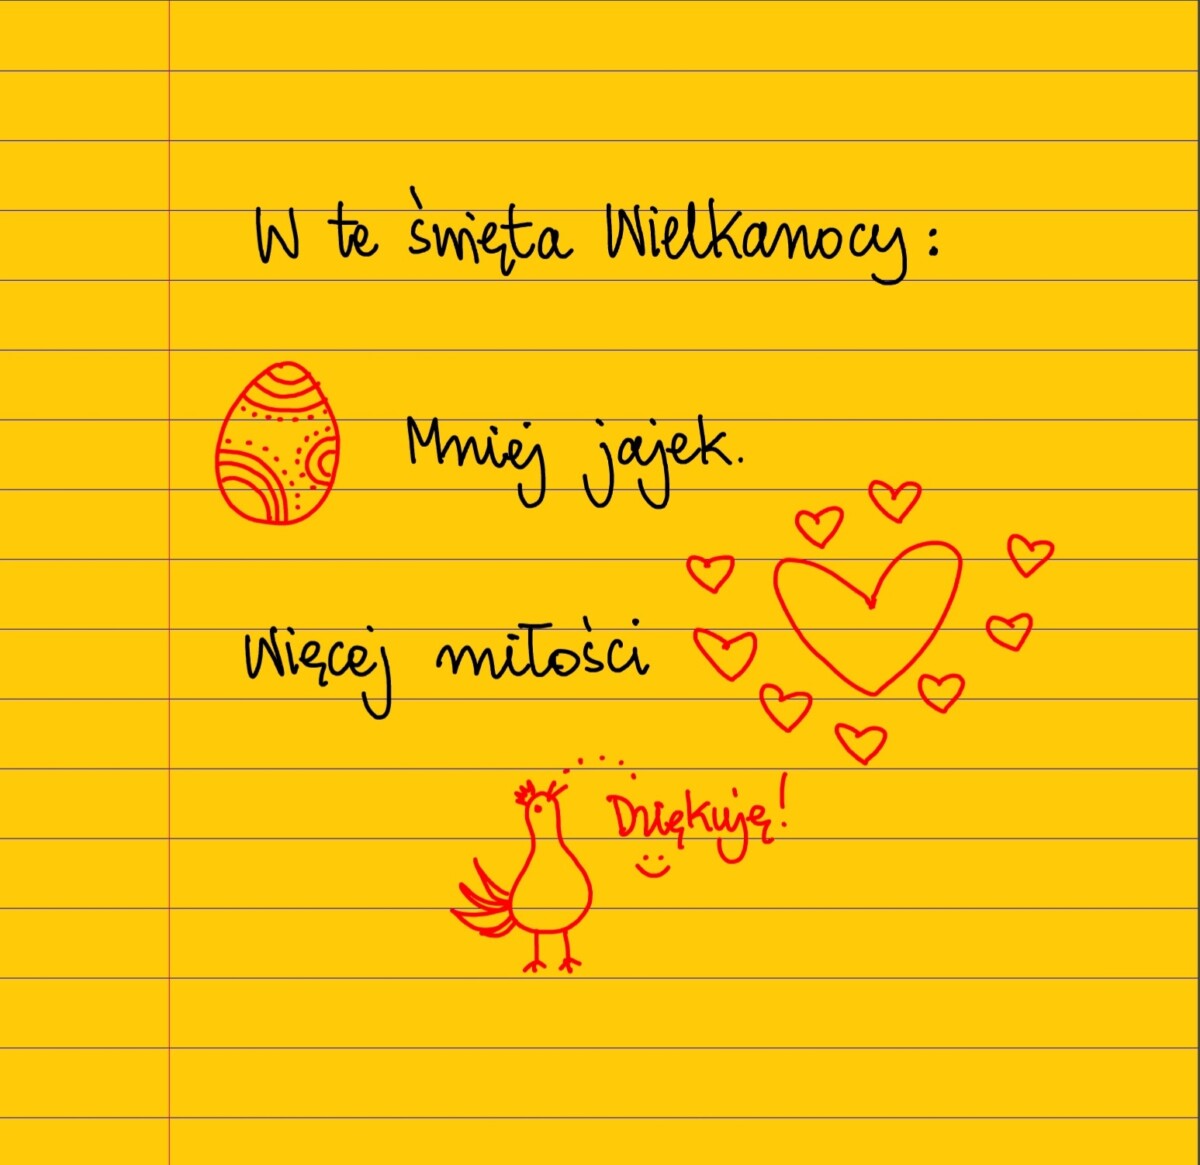 W te święta Wielkanocy:
Mniej jajek.
Więcej miłości
Dziękuję!